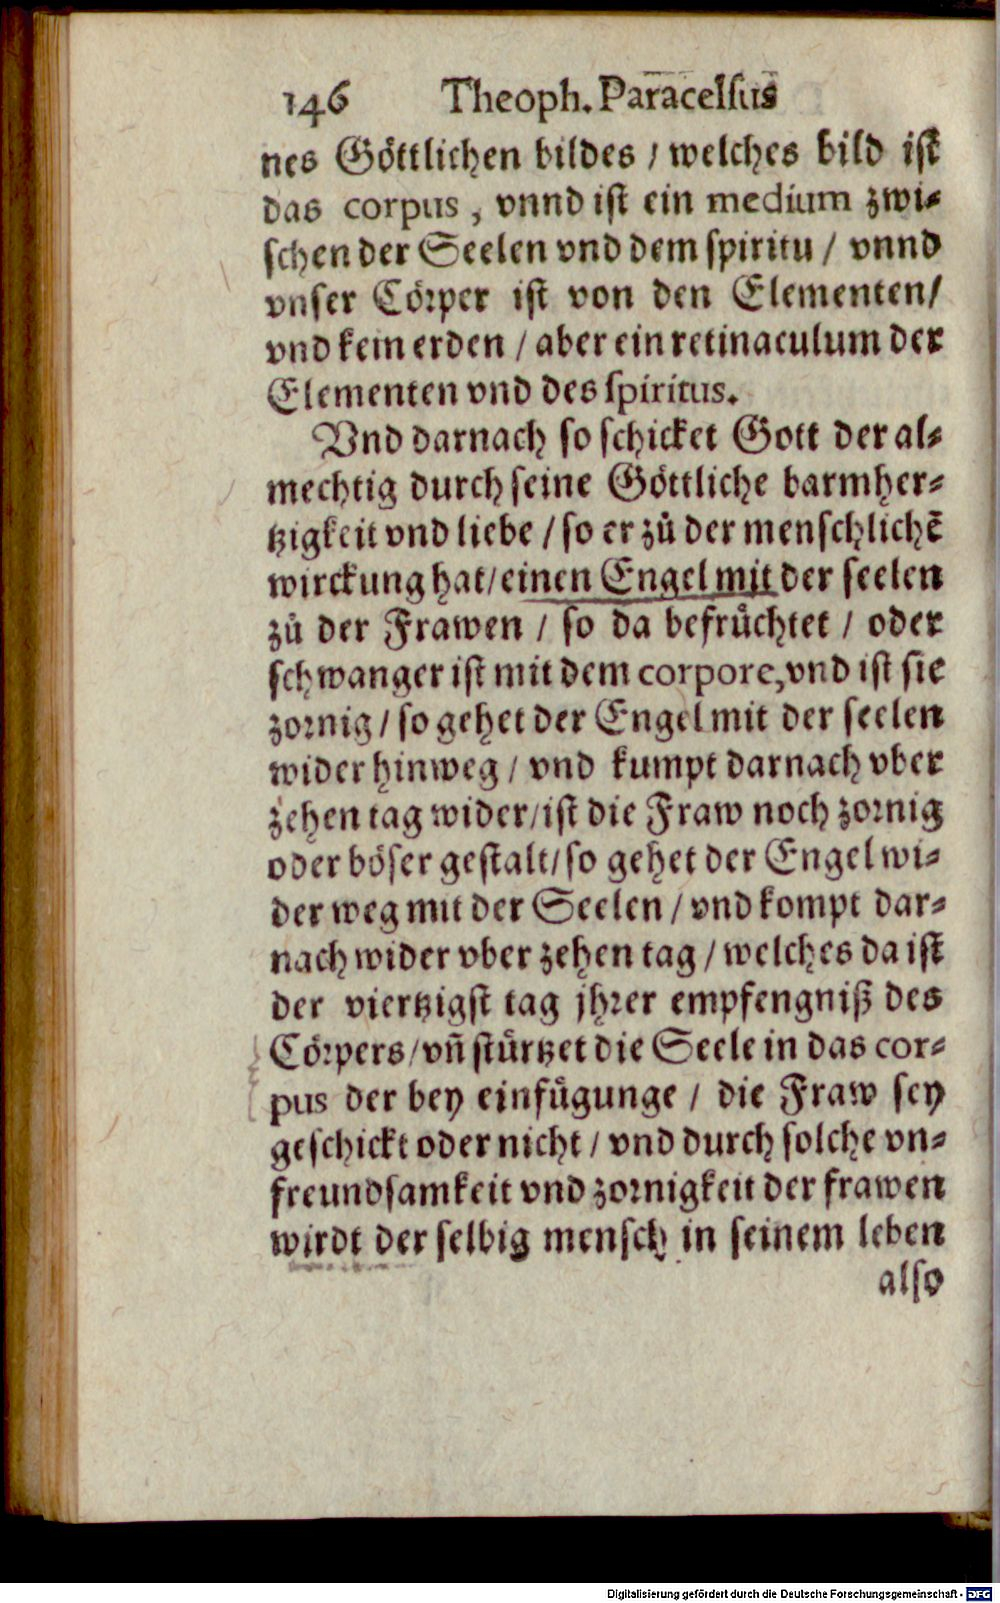 146 Theoph. Paracelsus
nes Göttlichen bildes / welches bild ist
das corpus, vnnd ist ein medium zwi⸗
schen der Seelen vnd dem spiritu / vnnd
vnser Cörper ist von den Elementen /
vnd kein erden / aber ein retinaculum der
Elementen vnd des spiritus.
Vnd darnach so schicket Gott der al⸗
mechtig durch seine Göttliche barmher⸗
tzigkeit vnd liebe / so er zů der menschlichē
wirckung hat / einen Engel mit der seelen
zů der Frawen / so da befrüchtet / oder
schwanger ist mit dem corpore, vnd ist sie
zornig / so gehet der Engel mit der seelen
wider hinweg / vnd kumpt darnach vber
zehen tag wider / ist die Fraw noch zornig
oder böser gestalt / so gehet der Engel wi⸗
der weg mit der Seelen / vnd kompt dar⸗
nach wider vber zehen tag / welches da ist
der viertzigst tag jhrer empfengniß des
Cörpers / vn̄ stürtzet die Seele in das cor⸗
pus der bey einfügunge / die Fraw sey
geschickt oder nicht / vnd durch solche vn⸗
freundsamkeit vnd zornigkeit der frawen
wirdt der selbig mensch in seinem leben
also
Digitalisierung gefördert durch die Deutsche Forschungsgemeinschaft - DFG